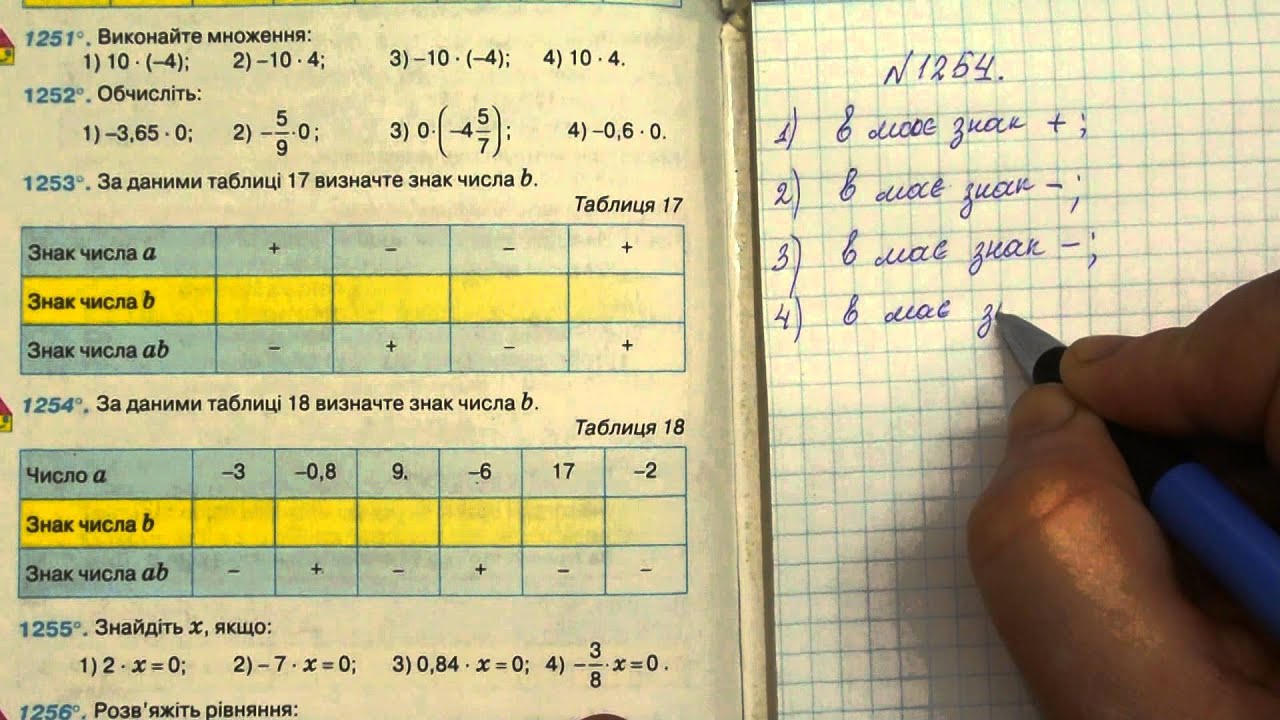 1251°. Виконайте множення:
1) 10 · (–4); 2) –10 · 4; 3) –10 · (–4); 4) 10 · 4.
1252°. Обчисліть:
1) –3,65 · 0; 2) –5/9 · 0; 3) 0 · (–4 5/7); 4) –0,6 · 0.
1253°. За даними таблиці 17 визначте знак числа b.
Таблиця 17
Знак числа a + – – +
Знак числа b
Знак числа ab – + – +
1254°. За даними таблиці 18 визначте знак числа b.
Таблиця 18
Число a –3 –0,8 9. –6 17 –2
Знак числа b
Знак числа ab – + – + – –
1255°. Знайдіть x, якщо:
1) 2 · x = 0; 2) – 7 · x = 0; 3) 0,84 · x = 0; 4) –3/8 · x = 0.
1256°. Розв'яжіть рівняння:
№1254.
1) в має знак +;
2) в має знак –;
3) в має знак –;
4) в має зн